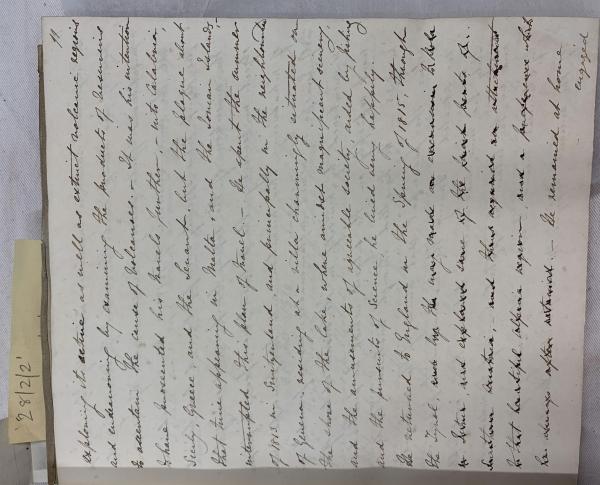 11.
exploring its active as well as extinct volcanic regions
and endeavouring by examining the products of
to ascertain the cause of Volcanoes. — It was his intention
to have prosecuted his travels further, — into Calabria,
Sicily, Greece and the Levant, but the plague about
that time appearing in Malta, and the Ionian Islands,
interrupted this plan of travel. — He spent the summer
of 1815 in Switzerland, and principally in the neighbourhood
of Geneva, residing at a villa charmingly situated on
the shore of the lake, where amidst magnificent scenery,
and the amusements of agreeable society, aided by fishing
and the pursuits of Science, he lived very happily.
He returned to England in the Spring of 1815, through
the Tyrol, and by the way made an excursion to
in Istria, and explored some of the finest parts of
Southern Austria, and thus acquired an
to that beautiful alpine region and a preference which
he always after retained. — He remained at home
engaged
'28/2/2'